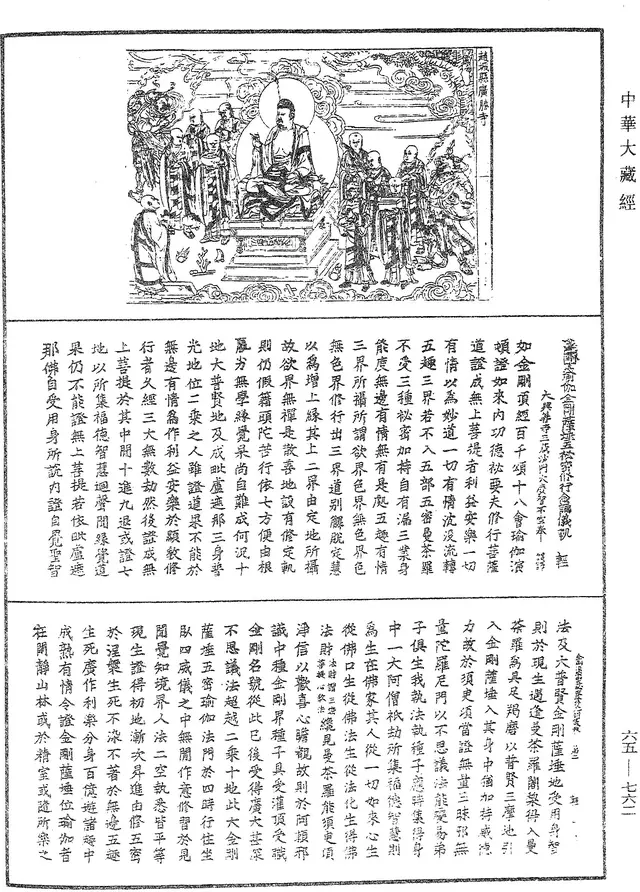 中華大藏經
趙城縣廣勝寺
金剛頂瑜伽金剛薩埵五祕密修行念誦儀軌
大興善寺三藏沙門大廣智不空奉 詔譯
如金剛頂經百千頌十八會瑜伽演
頓證如來內功德祕要夫修行菩薩
道證成無上菩提者利益安樂一切
有情以為妙道一切有情沈沒流轉
五趣三界若不入五部五密曼荼羅
不受三種祕密加持自有漏三業身
能度無邊有情無有是處五趣有情
三界所攝所謂欲界色界無色界色
無色界修行出三界道別解脫定慧
以為增上緣其上二界由定地所攝
故欲界無禪是散善地設有修定軌
則仍假藉頭陀苦行依七方便由根
羸劣無學緣覺果尚自難成何況十
地大普賢地及成毗盧遮那三身普
光地位二乘之人雖證道果不能於
無邊有情為作利益安樂於顯教修
行者久經三大無數劫然後證成無
上菩提於其中間十進九退或證七
地以所集福德智慧迴聲聞緣覺道
果仍不能證無上菩提若依毗盧遮
那佛自受用身所說內證自覺聖智
法及大普賢金剛薩埵他受用身智
則於現生遇逢曼荼羅阿闍梨得入曼
荼羅為具足羯磨以普賢三摩地引
入金剛薩埵入其身中由加持威德
力故於須臾頃當證無量三昧耶無
量陀羅尼門以不思議法能變易弟
子俱生我執法執種子應時集得身
中一大阿僧祇劫所集福德智慧則
為生在佛家其人從一切如來心生
從佛口生從佛法生從法化生得佛
法財法財謂三密菩提心教法纔見曼荼羅能須臾頃
淨信以歡喜心瞻覩故則於阿賴耶
識中種金剛界種子具受灌頂受職
金剛名號從此已後受得廣大甚深
不思議法超越二乘十地此大金剛
薩埵五密瑜伽法門於四時行住坐
臥四威儀之中無間作意修習於見
聞覺知境界人法二空執悉皆平等
現生證得初地漸次昇進由修五密
於涅槃生死不染不著於無邊五趣
生死廣作利樂分身百億遊諸趣中
成熟有情令證金剛薩埵位瑜伽者
在閑靜山林或於精室或隨所樂之
六五—七六二